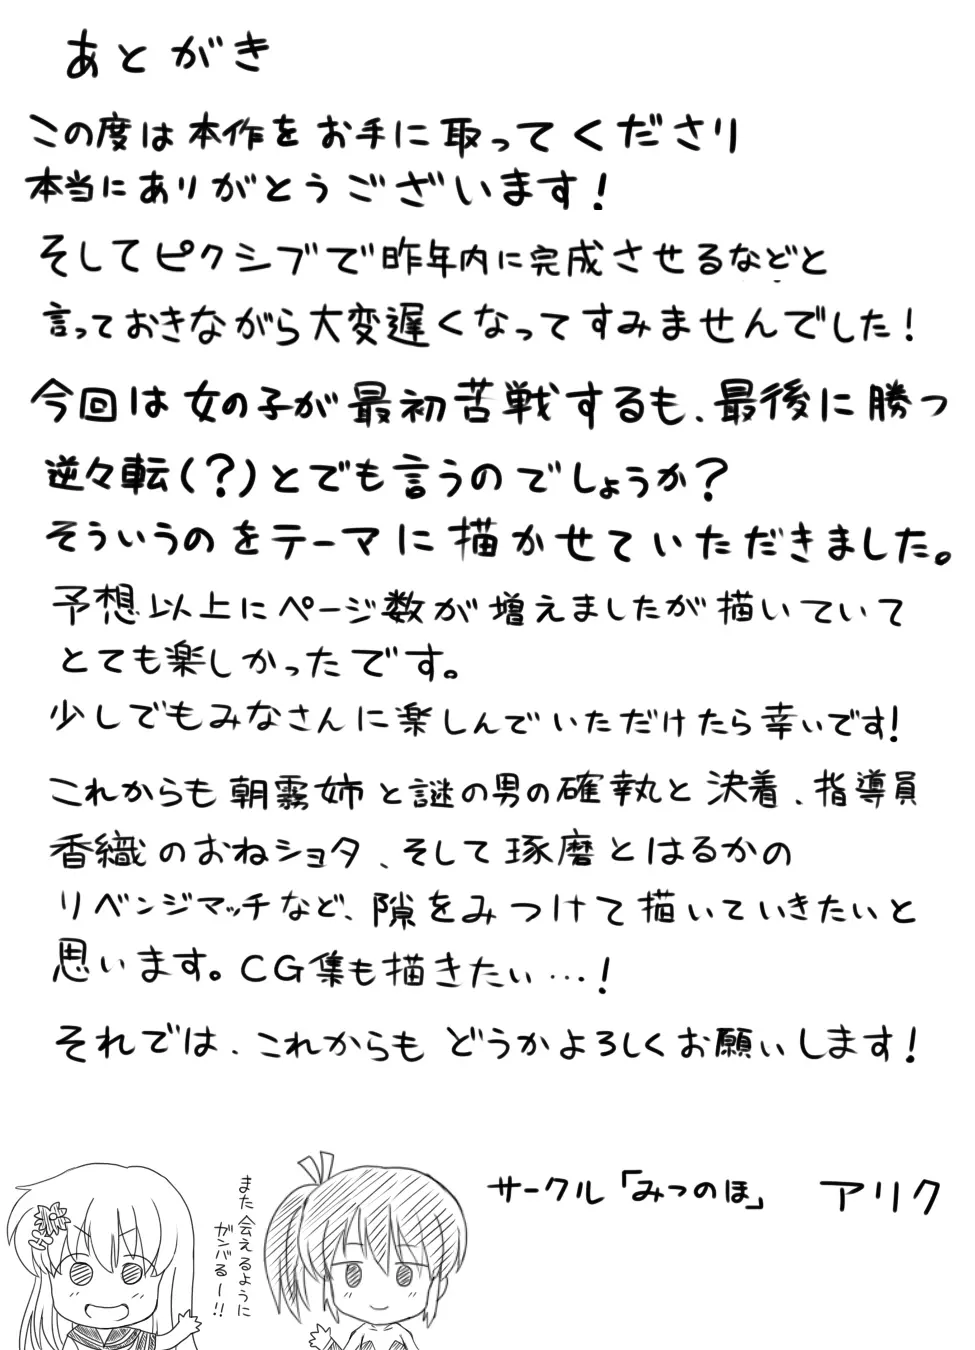 あとがき
この度は本作をお手に取ってくださり
本当にありがとうございます！
そしてピクシブで昨年内に完成させるなどと
言っておきながら大変遅くなってすみませんでした！
今回は女の子が最初苦戦するも、最後に勝つ
逆々転(?)とでも言うのでしょうか？
そういうのをテーマに描かせていただきました。
予想以上にページ数が増えましたが描いていて
とても楽しかったです。
少しでもみなさんに楽しんでいただけたら幸いです！
これからも朝霧姉と謎の男の確執と決着、指導員
香織のおねショタ、そして琢磨とはるかの
リベンジマッチなど、隙をみつけて描いていきたいと
思います。CG集も描きたい…！
それでは、これからもどうかよろしくお願いします！
また会えるように
ガンバるー!!
サークル「みつのほ」 アリク